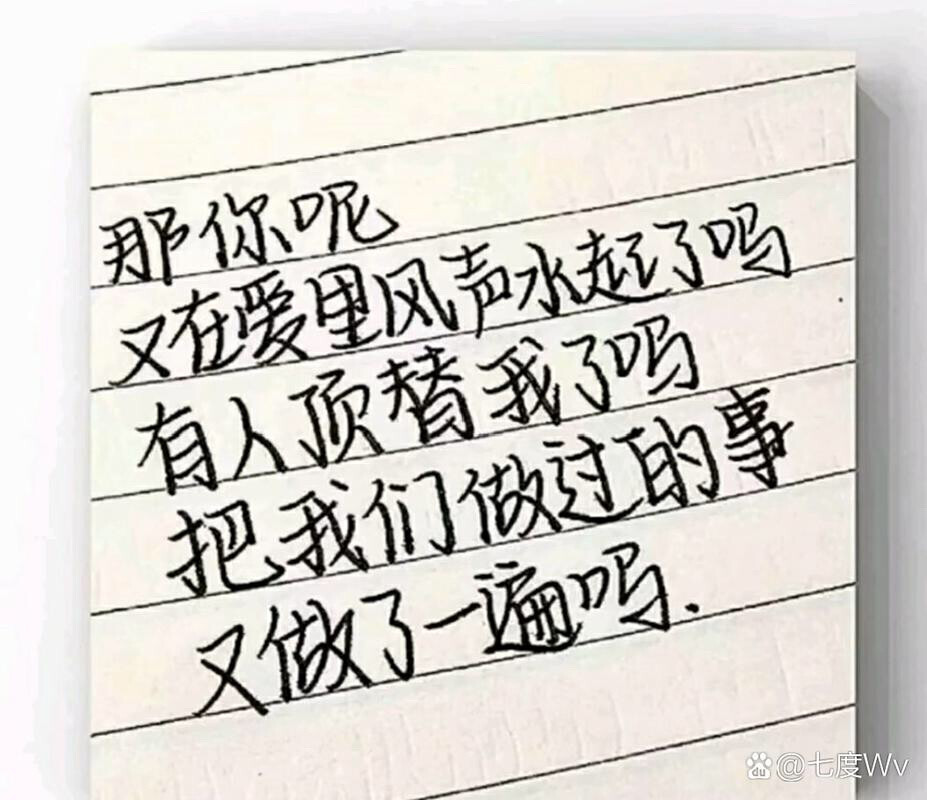 那你呢
又在爱里风声水起了吗
有人顶替我了吗
把我们做过的事
又做了一遍吗.
du @七度Wv